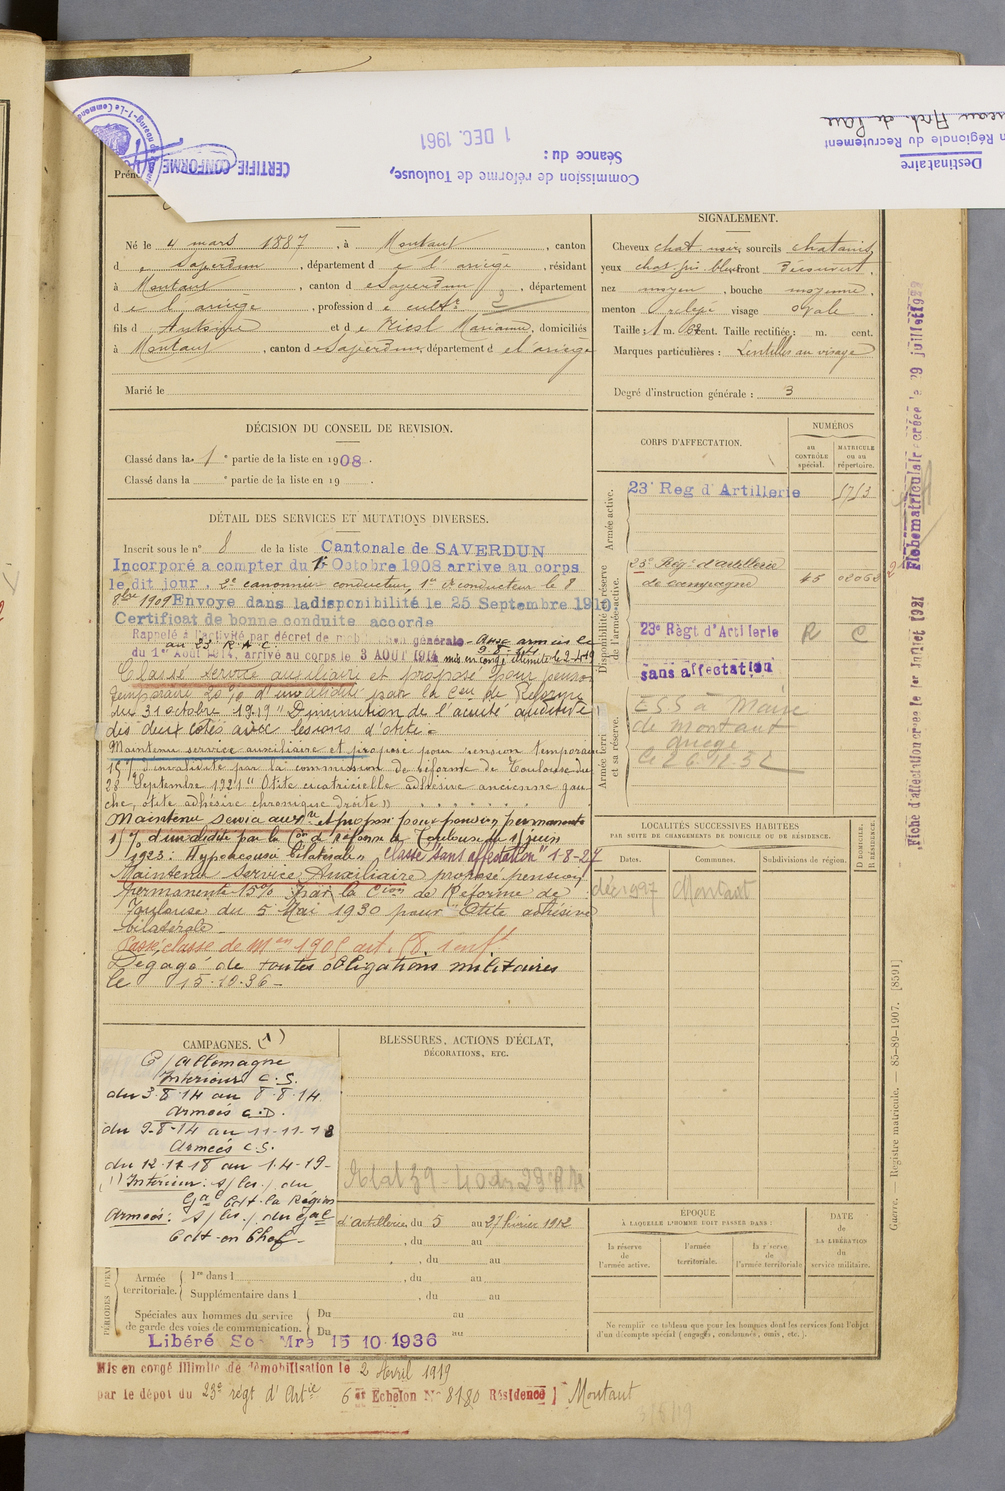 Destinataire
Régionale du Recrutement
Commission de réforme de Toulouse,
Séance du :
1 DEC. 1961
CERTIFIE CONFORME
Né le 4 mars 1887, à Montaut, canton
d e Saverdun, département d e l'ariège, résidant
à Montaut, canton d e Saverdun, département
d e l'ariège, profession d e cultr
fils d' Antoine et d e Riest Marianne, domiciliés
à Montaut, canton d e Saverdun, département d e l'ariège
Marié le
SIGNALEMENT.
Cheveux chat. noir, sourcils chatains
yeux chat. gris bleu front découvert,
nez moyen, bouche moyenne,
menton relevé visage ovale.
Taille : 1 m. 62 cent. Taille rectifiée : m. cent.
Marques particulières : Lentilles au visage
Degré d'instruction générale : 3
DÉCISION DU CONSEIL DE REVISION.
Classé dans la 1e partie de la liste en 1908.
Classé dans la e partie de la liste en 19 .
DÉTAIL DES SERVICES ET MUTATIONS DIVERSES.
Inscrit sous le n° 8 de la liste Cantonale de SAVERDUN
Incorporé a compter du 1r Octobre 1908 arrive au corps
le dit jour, 2e canonnier conducteur, 1er conducteur le 8
8bre 1909 Envoye dans la disponibilité le 25 Septembre 1910.
Certificat de bonne conduite accorde
Rappelé à l'activité par décret de mobilisation générale - Passé armées le
au 23e R.A.C. 9-8-14
du 1er Août 1914, arrivé au corps le 3 AOUT 1914 mis en congé illimité le 2-4-19
Classé service auxiliaire et proposé pour pension
temporaire 20% d'invalidité par la Con de Réforme
du 31 octobre 1919 "Diminution de l'acuité auditive
des deux cotés avec lésions d'otite =
Maintenu service auxiliaire et proposé pour pension temporaire
15% d'invalidité par la commission de réforme de Toulouse du
28 Septembre 1921 "Otite cicatricielle adhésive ancienne gau-
che, otite adhésive chronique droite"
Maintenu service auxre et proposé pour pension permanente
15% d'invalidité par la Con de réforme de Toulouse du 15 juin
1923 : Hypoacousie bilatérale. Classé "sans affectation" 1-8-27
Maintenu Service Auxiliaire proposé pension
permanente 15% par la Cion de Réforme de
Toulouse du 5 Mai 1930 pour "Otite adhésive
bilatérale -
Passé classe de Men 1905 art. 58. 1 enft
Dégagé de toutes obligations militaires
le 15.10.36 -
CORPS D'AFFECTATION.
NUMÉROS
au CONTRÔLE spécial.
MATRICULE ou au répertoire.
Armée active.
23e Reg d'Artillerie 5753
Disponibilité et réserve de l'armée active.
23e Régt d'artillerie
de campagne 45 02052
23e Règt d'Artillerie R C
sans affectation
Armée territoriale et sa réserve.
ESS à Mairie
de Montaut
ariège
LOCALITÉS SUCCESSIVES HABITÉES
PAR SUITE DE CHANGEMENTS DE DOMICILE OU DE RÉSIDENCE.
Dates. Communes. Subdivisions de région. D DOMICILE. R RÉSIDENCE.
déc 1927 Montaut
CAMPAGNES. (1)
C/ Allemagne
Intérieur C.S.
du 3-8-14 au 8-8-14
Armées C.D.
du 9-8-14 au 11-11-18
Armées C.S.
du 12-11-18 au 1-4-19-
(1) Intérieur : s/ les./ du
Gal Cdt la Région
Armées : s/ les./ du Gal
Cdt en Chef
BLESSURES, ACTIONS D'ÉCLAT,
DÉCORATIONS, ETC.
d'Artillerie, du 5 au 27 février 1912
, du au
, du au
Armée territoriale.
1re dans l , du au
Supplémentaire dans l , du au
Spéciales aux hommes du service
de garde des voies de communication.
Du au
Du au
Libéré Sce Mre 15 10 1936
ÉPOQUE
À LAQUELLE L'HOMME DOIT PASSER DANS :
la réserve de l'armée active.
l'armée territoriale.
la réserve de l'armée territoriale
DATE de LA LIBÉRATION du service militaire.
Ne remplir ce tableau que pour les hommes dont les services font l'objet
d'un décompte spécial (engagés, condamnés, omis, etc.).
Mis en congé illimité de démobilisation le 2 Avril 1919
par le dépôt du 23e régt d'Artie 6e Echelon N° 8180 Résidence] Montaut
Fiche matriculaire créée le 29 juillet 1929
Fiche d'affectation créée le 1er Juillet 1921
Guerre. — Registre matricule. — 85-89-1907. [8591]